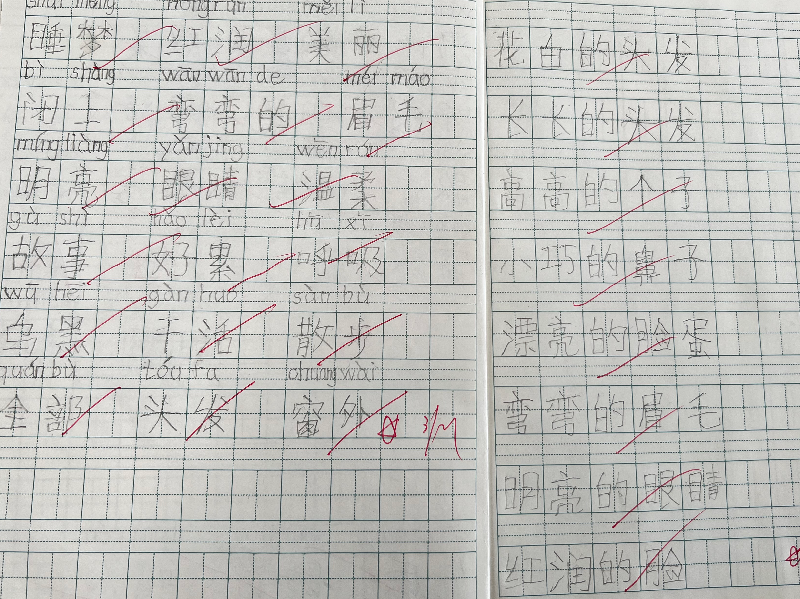 睡梦 红润 美丽
bì shàng wān wān de méi máo
闭上 弯弯的 眉毛
míng liàng yǎn jing wēn róu
明亮 眼睛 温柔
gù shì hǎo lèi hū xī
故事 好累 呼吸
wū hēi gàn huó sàn bù
乌黑 干活 散步
quán bù tóu fa chuāng wài
全部 头发 窗外
花白的头发
长长的头发
高高的个子
小巧的鼻子
漂亮的脸蛋
弯弯的眉毛
明亮的眼睛
红润的脸